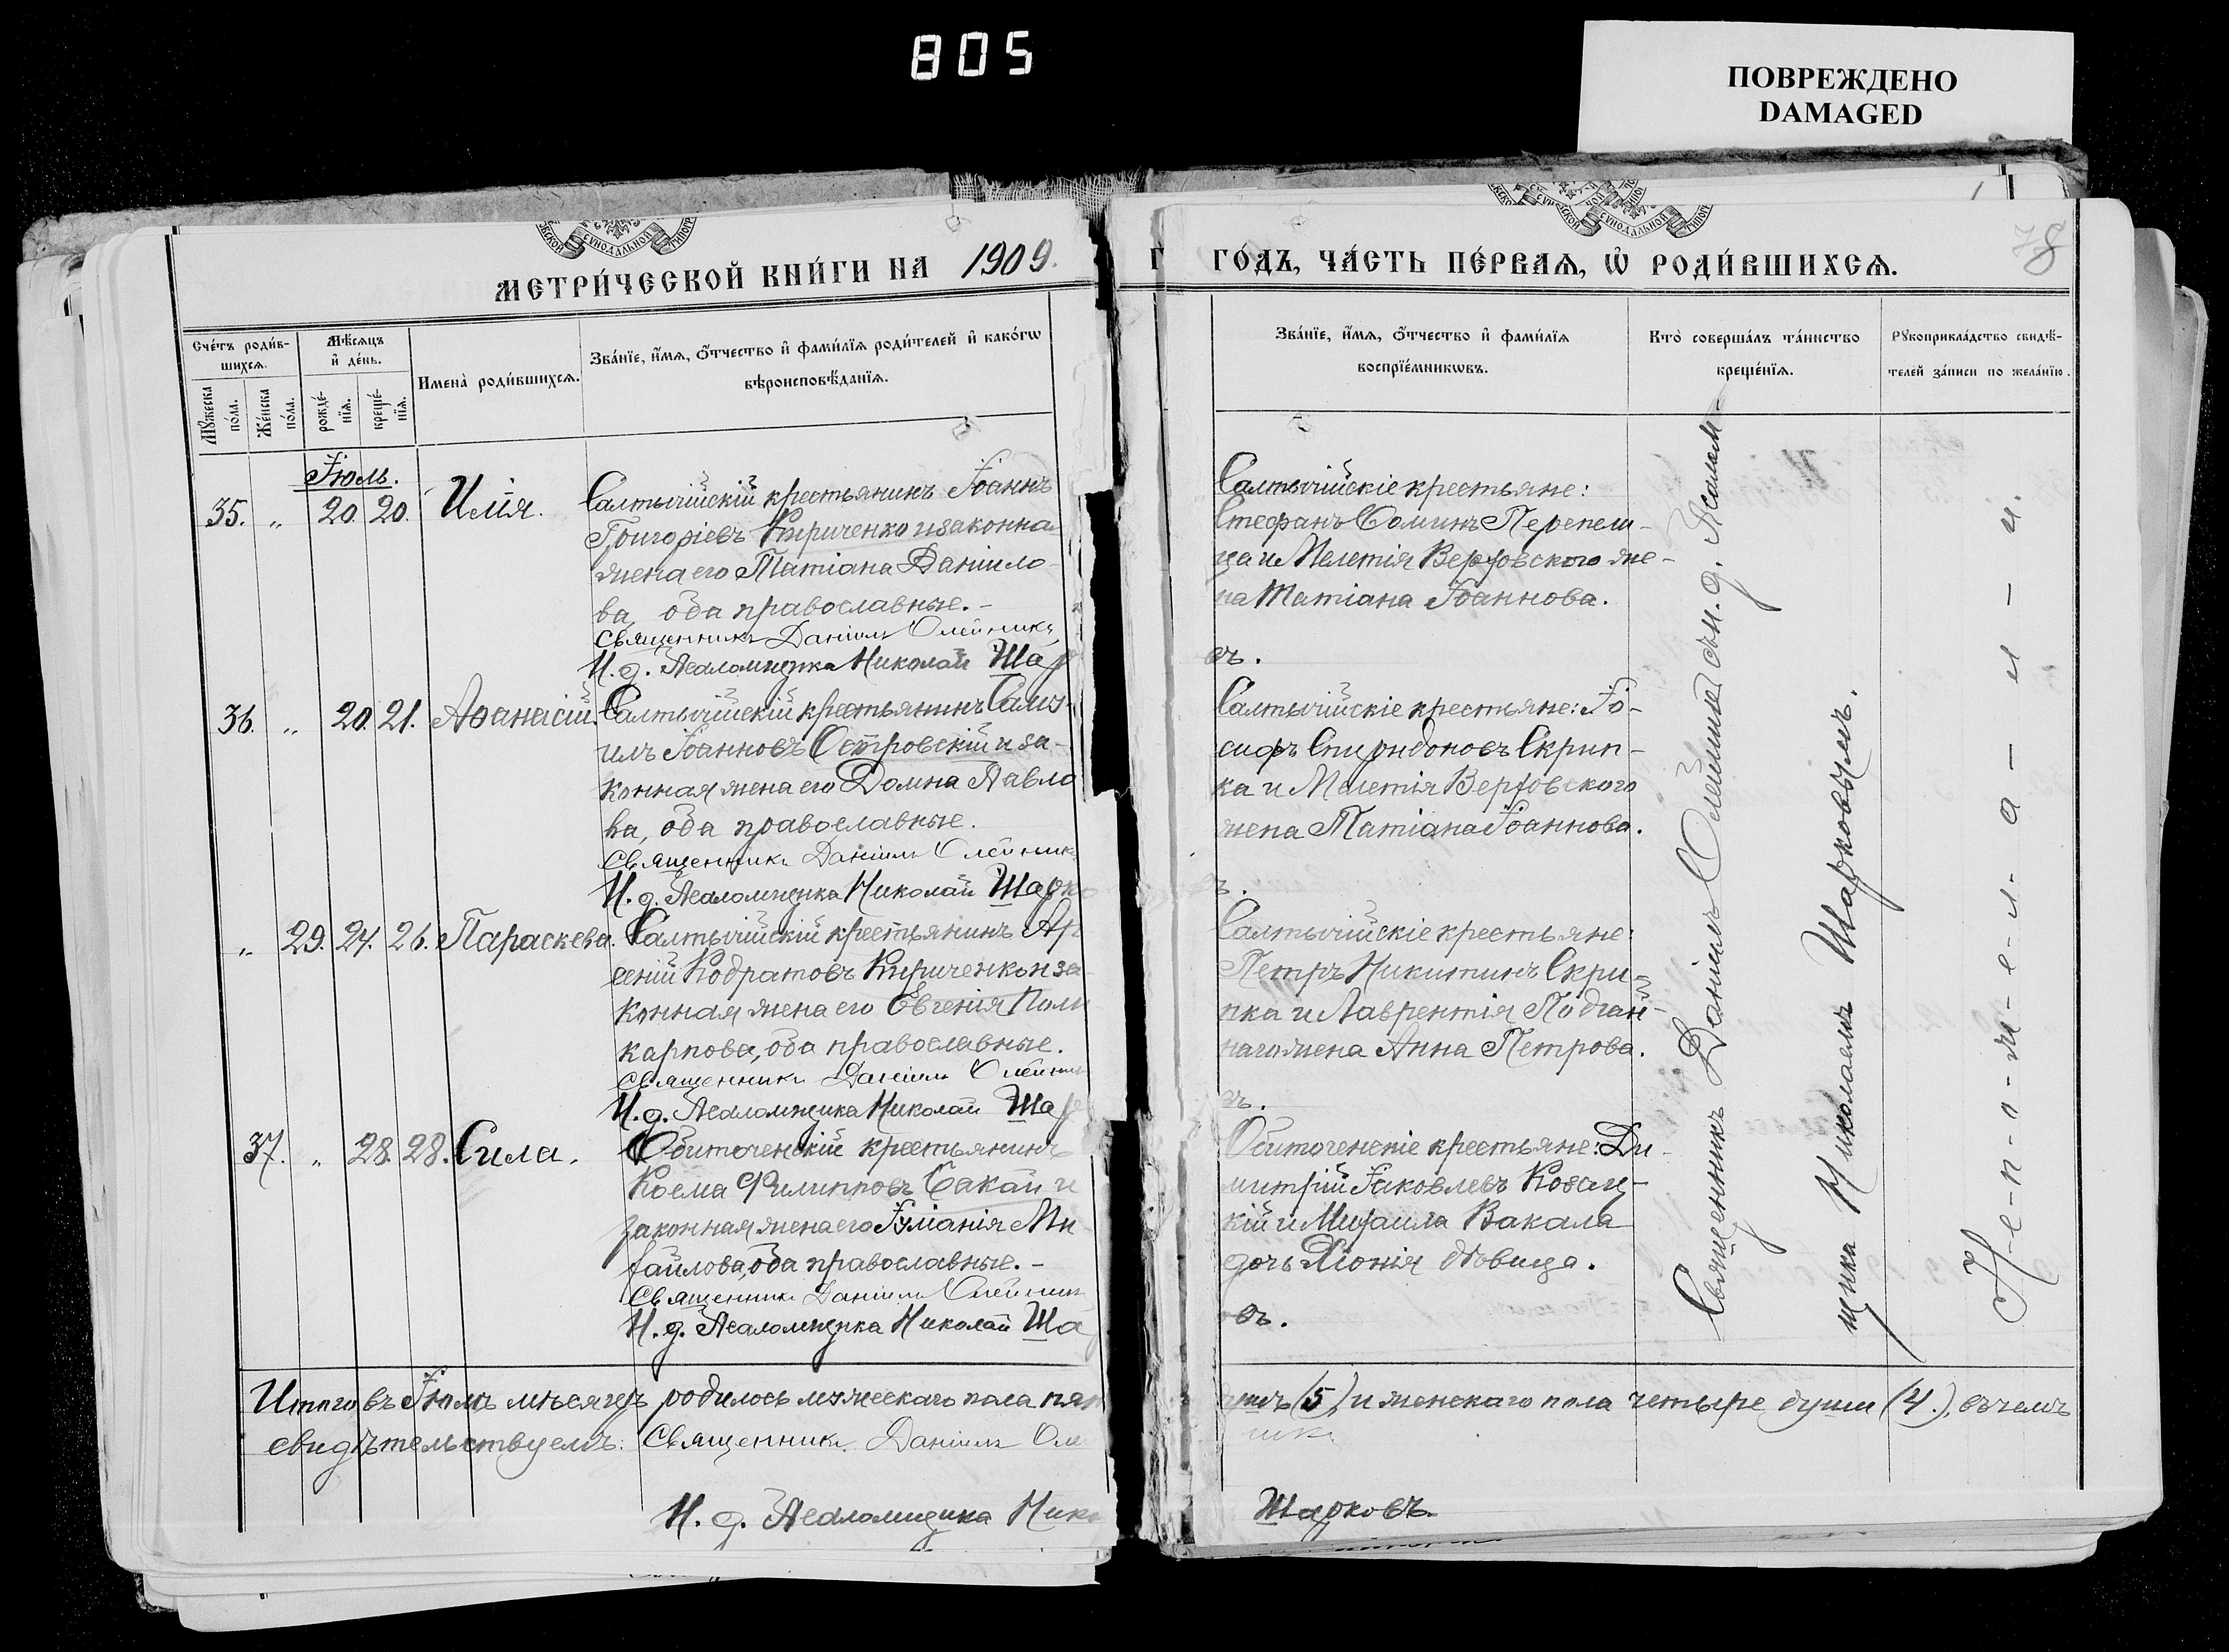 805
ПОВРЕЖДЕНО
DAMAGED
МЕТРИ́ЧЕСКОЙ КНИ́ГИ НА 1909.
ГО́ДЪ, ЧА́СТЬ ПЕ́РВАѦ, Ѡ҆ РОДИ́ВШИХСѦ.
78
Сче́тъ роди́в-
шихсѧ.
Мѣ́сѧцъ
и҆ де́нь.
Мꙋ́жеска
по́ла.
Же́нска
по́ла.
рожде́-
нїѧ.
креще́-
нїѧ.
Имена̀ роди́вшихсѧ.
Зва́нїе, и҆́мѧ, ѻ҆́тчество и҆ фами́лїѧ роди́телей и҆ како́гѡ
вѣроисповѣ́данїѧ.
Зва́нїе, и҆́мѧ, ѻ҆́тчество и҆ фами́лїѧ
воспрїе́мникѡвъ.
Кто̀ соверша́лъ та́инство
креще́нїѧ.
Рꙋкоприкла́дство свидѣ́-
телей за́писи по жела́нїю.
Іюль.
35. „ 20. 20. Илія.
Салтычійскій крестьянинъ Іоаннъ
Григоріевъ Кириченко и законная
жена его Татіана Даніило-
ва, оба православные.-
Священникъ Даніилъ Олейникъ
И. д. Псаломщика Николай Шар
Салтычійскіе крестьяне:
Стефанъ Соминъ Перепели-
ца и Мелетія Верховского же-
на Татіана Іоаннова.
въ.
36. „ 20. 21. Аѳанасій.
Салтычійскій крестьянинъ Саму-
илъ Іоанновъ Островскій и за-
конная жена его Домна Павло
ва, оба православные.
Священникъ Даніилъ Олейникъ
И. д. Псаломщика Николай Шарко
Салтычійскіе крестьяне: Іо-
сифъ Спиридоновъ Скрип-
ка и Мелетія Верховского
жена Татіана Іоаннова.
ъ.
„ 29. 24. 26. Параскева.
Салтычійскій крестьянинъ Ар
сеній Кодратовъ Кириченко и за-
конная жена его Евгенія Поли
карпова, оба православные.
Священникъ Даніилъ Олейник
И. д. Псаломщика Николай Шар
Салтычійскіе крестьяне:
Петръ Никитинъ Скри-
пка и Лаврентія Подгай-
наго жена Анна Петрова.
въ.
37. „ 28. 28. Сила.
Обиточенскій крестьянинъ
Косма Филипповъ Бакай и
законная жена его Іуліанія Ми
хайлова, оба православные.-
Священникъ Даніилъ Олейник
И. д. Псаломщика Николай Шар
Обиточенскіе крестьяне: Ди-
митрій Іаковлевъ Козац-
кій и Михаила Вакала
дочь Хіонія дѣвица.
овъ.
Священникъ Даніилъ Олейникъ съ и. д. Псалом-
щика Николаемъ Шарковымъ.
Н-е-п-о-ж-е-л-а-л-и.
Итого въ Іюлѣ мѣсяцѣ родилось мужескаго пола пят
ь (5) и женскаго пола четыре души (4.), въ чемъ
свидѣтельствуемъ: Священникъ Даніилъ Оле
никъ
И. д. Псаломщика Нико
Шарковъ.